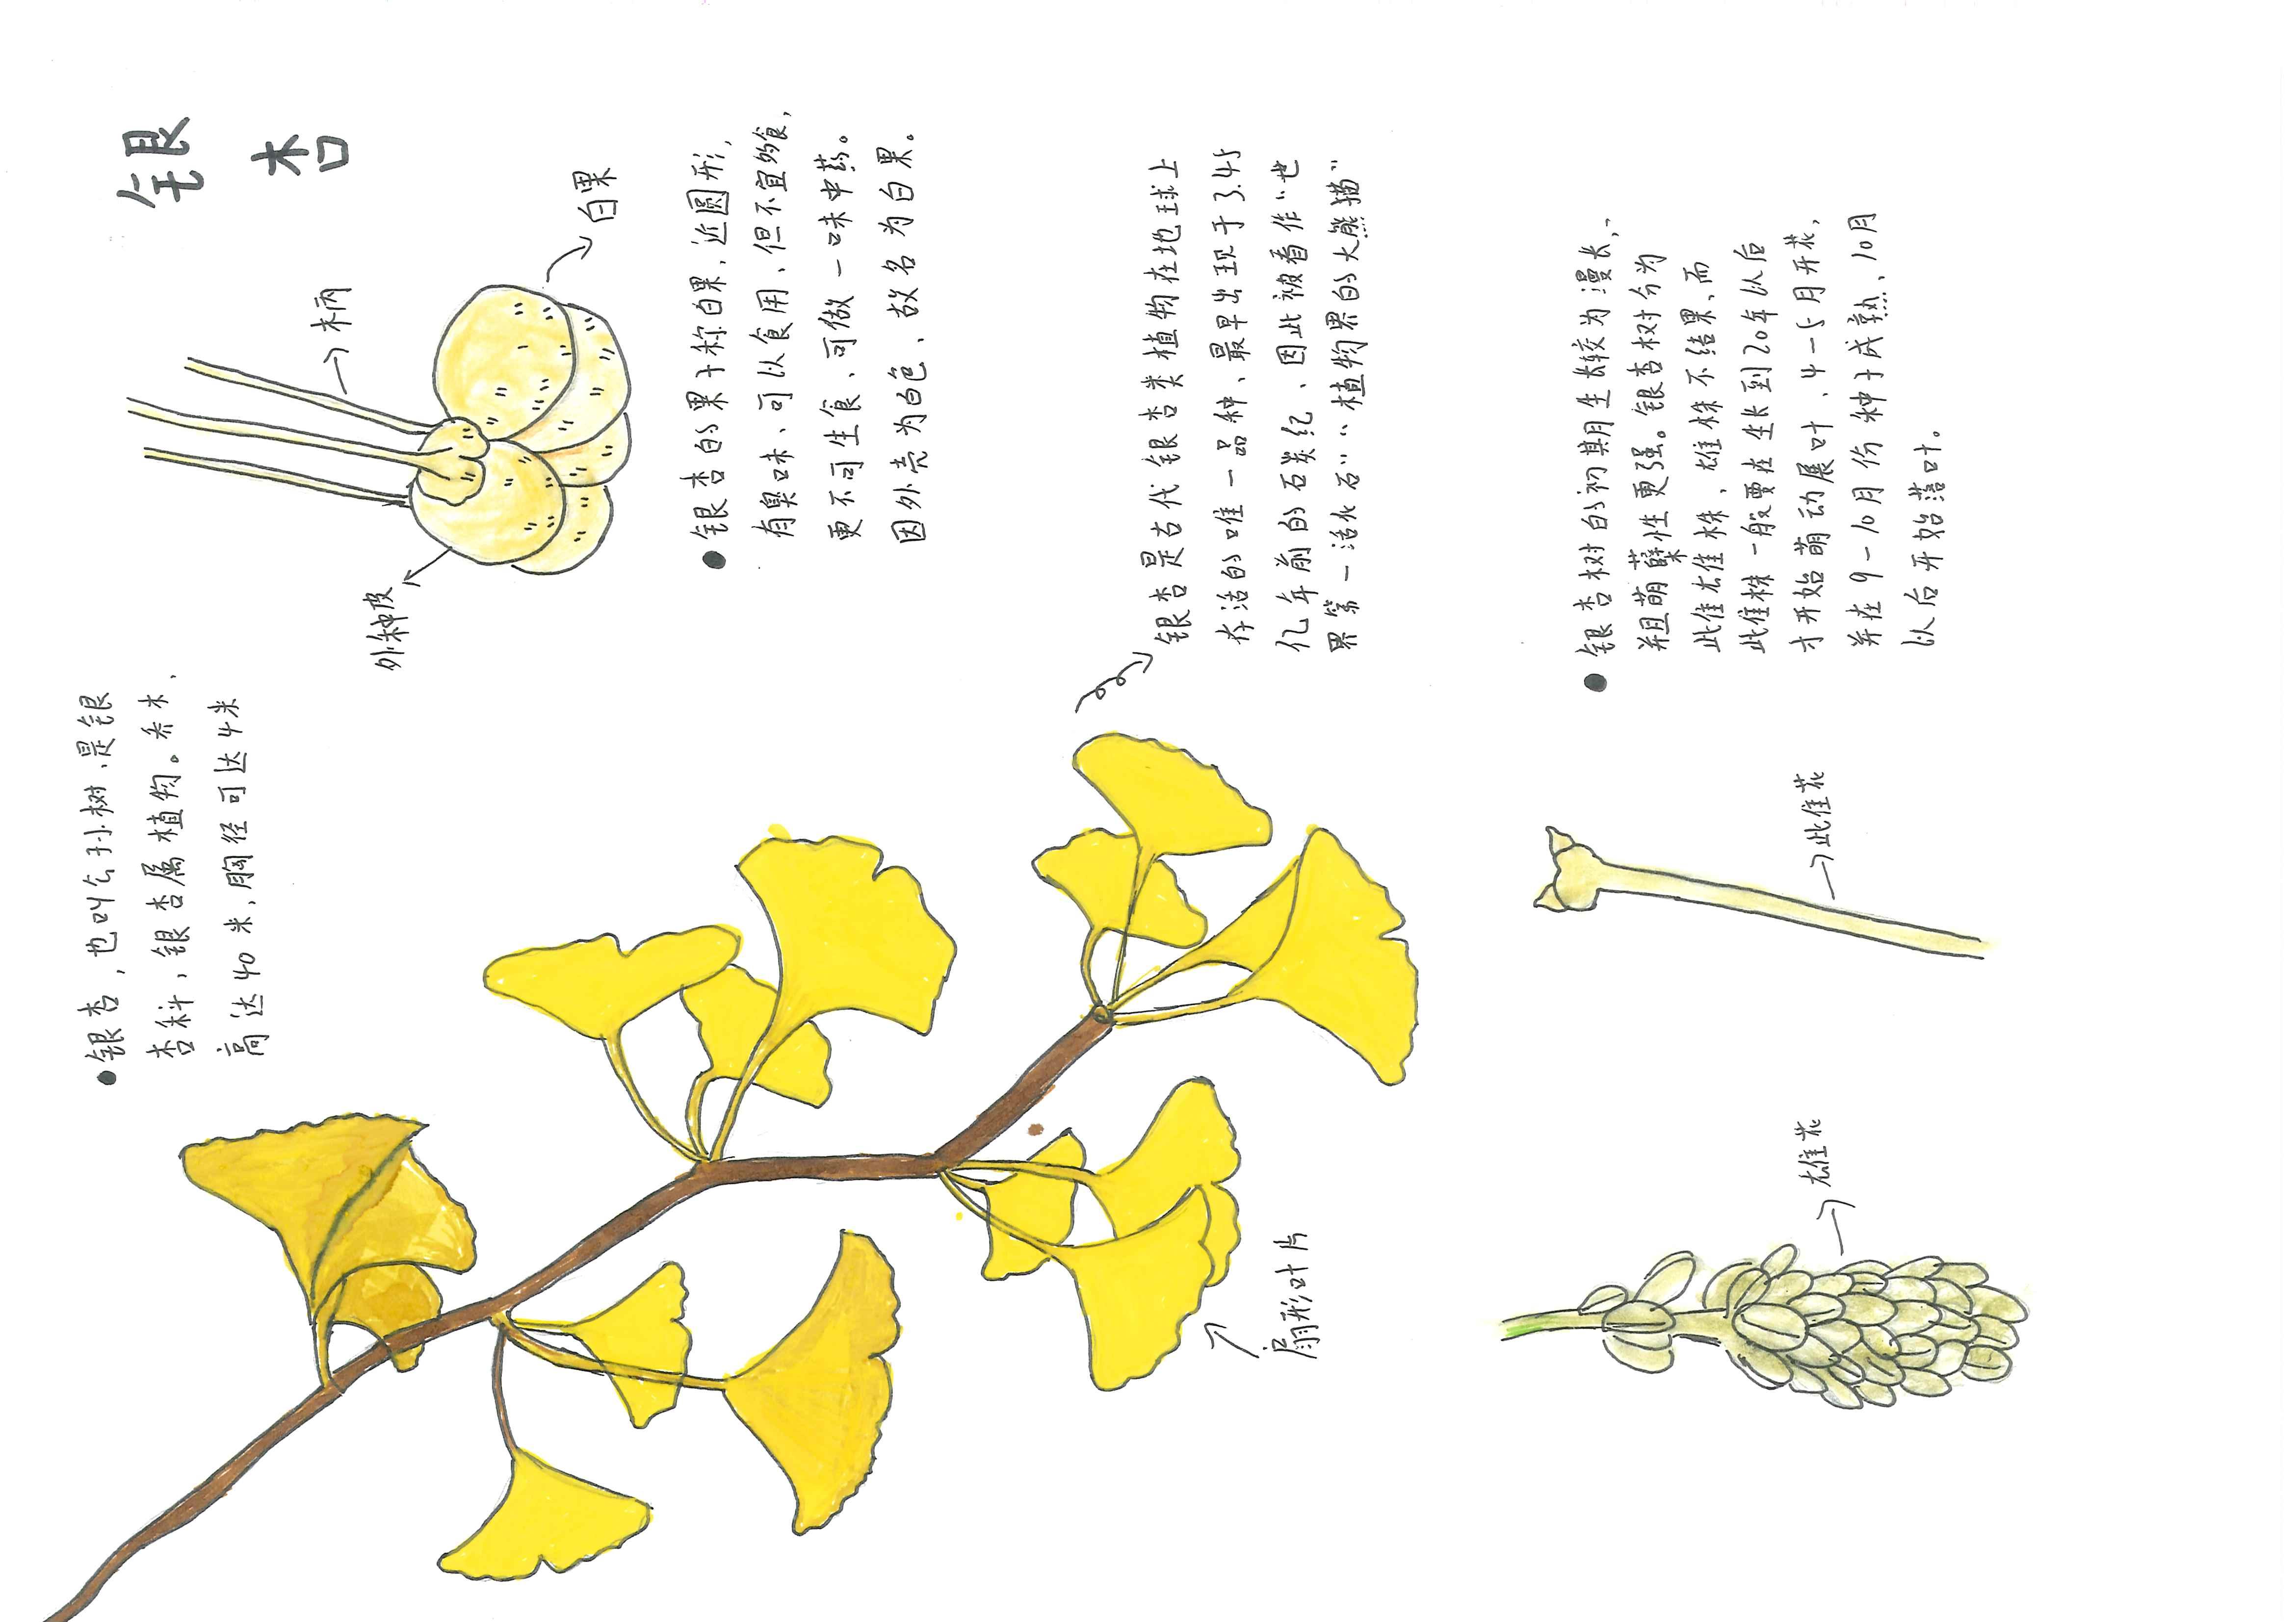 银杏
柄
白果
外种皮
银杏,也叫公孙树、是银
杏科,银杏属植物。乔木、
高达40米,胸径可达4米
银杏的果子称白果,近圆形,
有臭味、可以食用、但不宜多食,
更不可生食、可做一味中药。
因外壳为白色、故名为白果。
银杏是古代银杏类植物在地球上
存活的唯一品种、最早出现于3.45
亿年前的石炭纪、因此被看作“世
界第一活化石”“植物界的大熊猫”
扇形叶片
银杏树的初期生长较为漫长、
并且萌蘖性更强。银杏树分为
雌雄株,雄株不结果、而
雌株一般要在生长到20年以后
才开始萌动展叶、4-5月开花,
并在9-10月份种子成熟、10月
以后开始落叶。
雌花
雄花